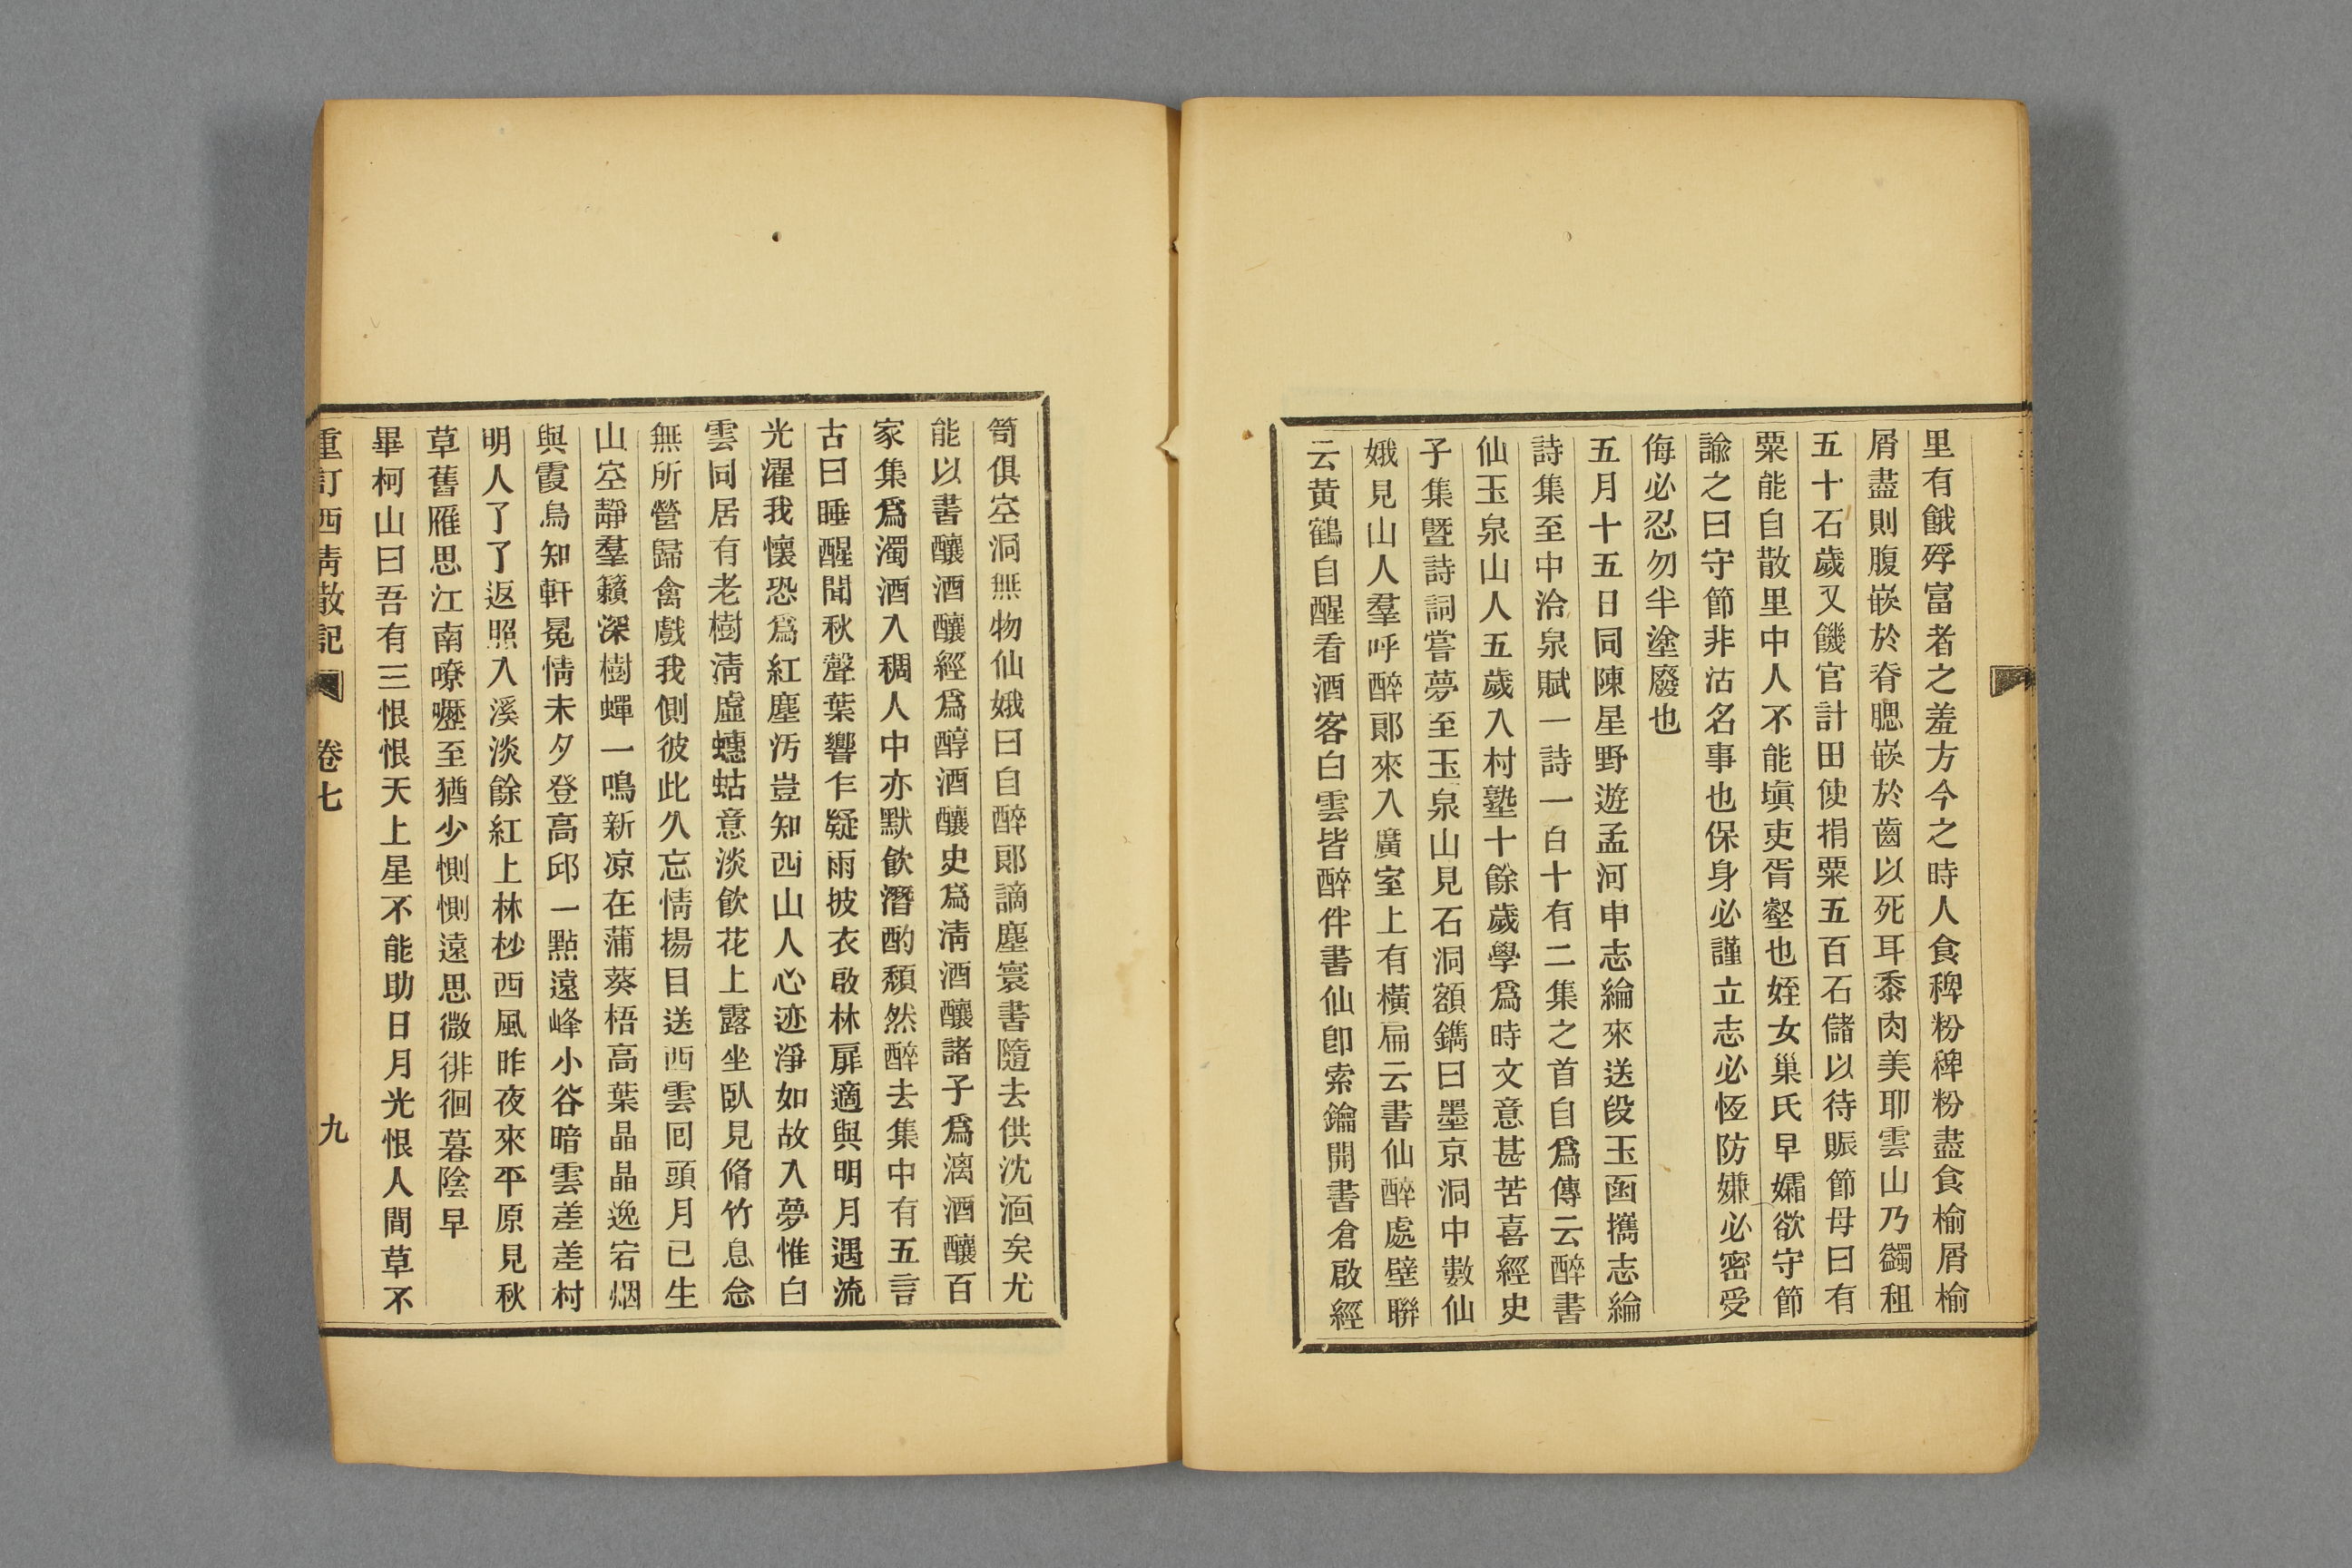 里有餓殍富者之羞方今之時人食稗粉稗粉盡食榆屑榆
屑盡則腹嵌於脊腮嵌於齒以死耳黍肉美耶雲山乃蠲租
五十石歲又饑官計田使捐粟五百石儲以待賑節母曰有
粟能自散里中人不能塡吏胥壑也姪女巢氏早孀欲守節
諭之曰守節非沽名事也保身必謹立志必恆防嫌必密受
侮必忍勿半塗廢也
五月十五日同陳星野遊孟河申志綸來送段玉函攜志綸
詩集至中洽泉賦一詩一百十有二集之首自爲傳云醉書
仙玉泉山人五歲入村塾十餘歲學爲時文意甚苦喜經史
子集曁詩詞嘗夢至玉泉山見石洞額鐫曰墨京洞中數仙
娥見山人羣呼醉郞來入廣室上有橫扁云書仙醉處壁聯
云黃鶴自醒看酒客白雲皆醉伴書仙卽索鑰開書倉啟經
笥俱空洞無物仙娥曰自醉郞謫塵寰書隨去供沈湎矣尤
能以書釀酒釀經爲醇酒釀史爲淸酒釀諸子爲漓酒釀百
家集爲濁酒入稠人中亦默飮潛酌頹然醉去集中有五言
古曰睡醒聞秋聲葉響乍疑雨披衣啟林扉適與明月遇流
光濯我懷恐爲紅塵汚豈知西山人心迹淨如故入夢惟白
雲同居有老樹淸虛蟪蛄意淡飮花上露坐臥見脩竹息念
無所營歸禽戲我側彼此久忘情揚目送西雲囘頭月已生
山空靜羣籟深樹蟬一鳴新凉在蒲葵梧高葉晶晶逸宕烟
與霞鳥知軒冕情未夕登高邱一點遠峰小谷暗雲差差村
明人了了返照入溪淡餘紅上林杪西風昨夜來平原見秋
草舊雁思江南嘹嚦至猶少惻惻遠思微徘徊暮陰早
畢柯山曰吾有三恨恨天上星不能助日月光恨人間草不
重訂西青散記
卷七
九